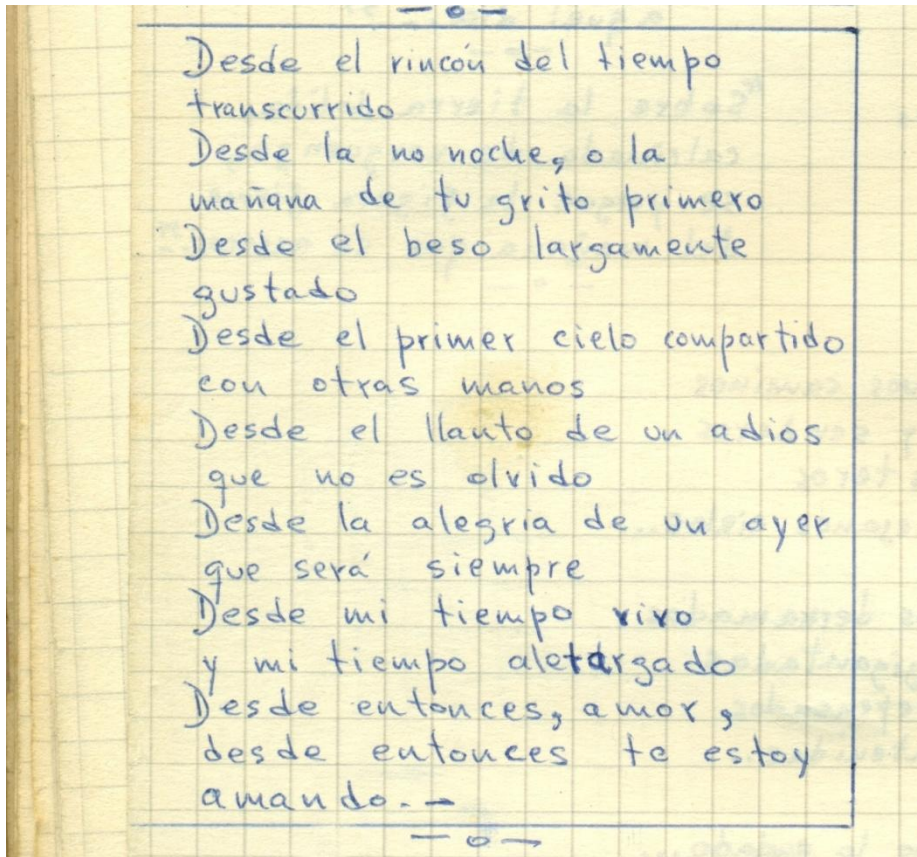 Desde el rincón del tiempo
transcurrido
Desde la no noche, o la
mañana de tu grito primero
Desde el beso largamente
gustado
Desde el primer cielo compartido
con otras manos
Desde el llanto de un adios
que no es olvido
Desde la alegria de un ayer
que será siempre
Desde mi tiempo vivo
y mi tiempo aletargado
Desde entonces, amor,
desde entonces te estoy
amando.-